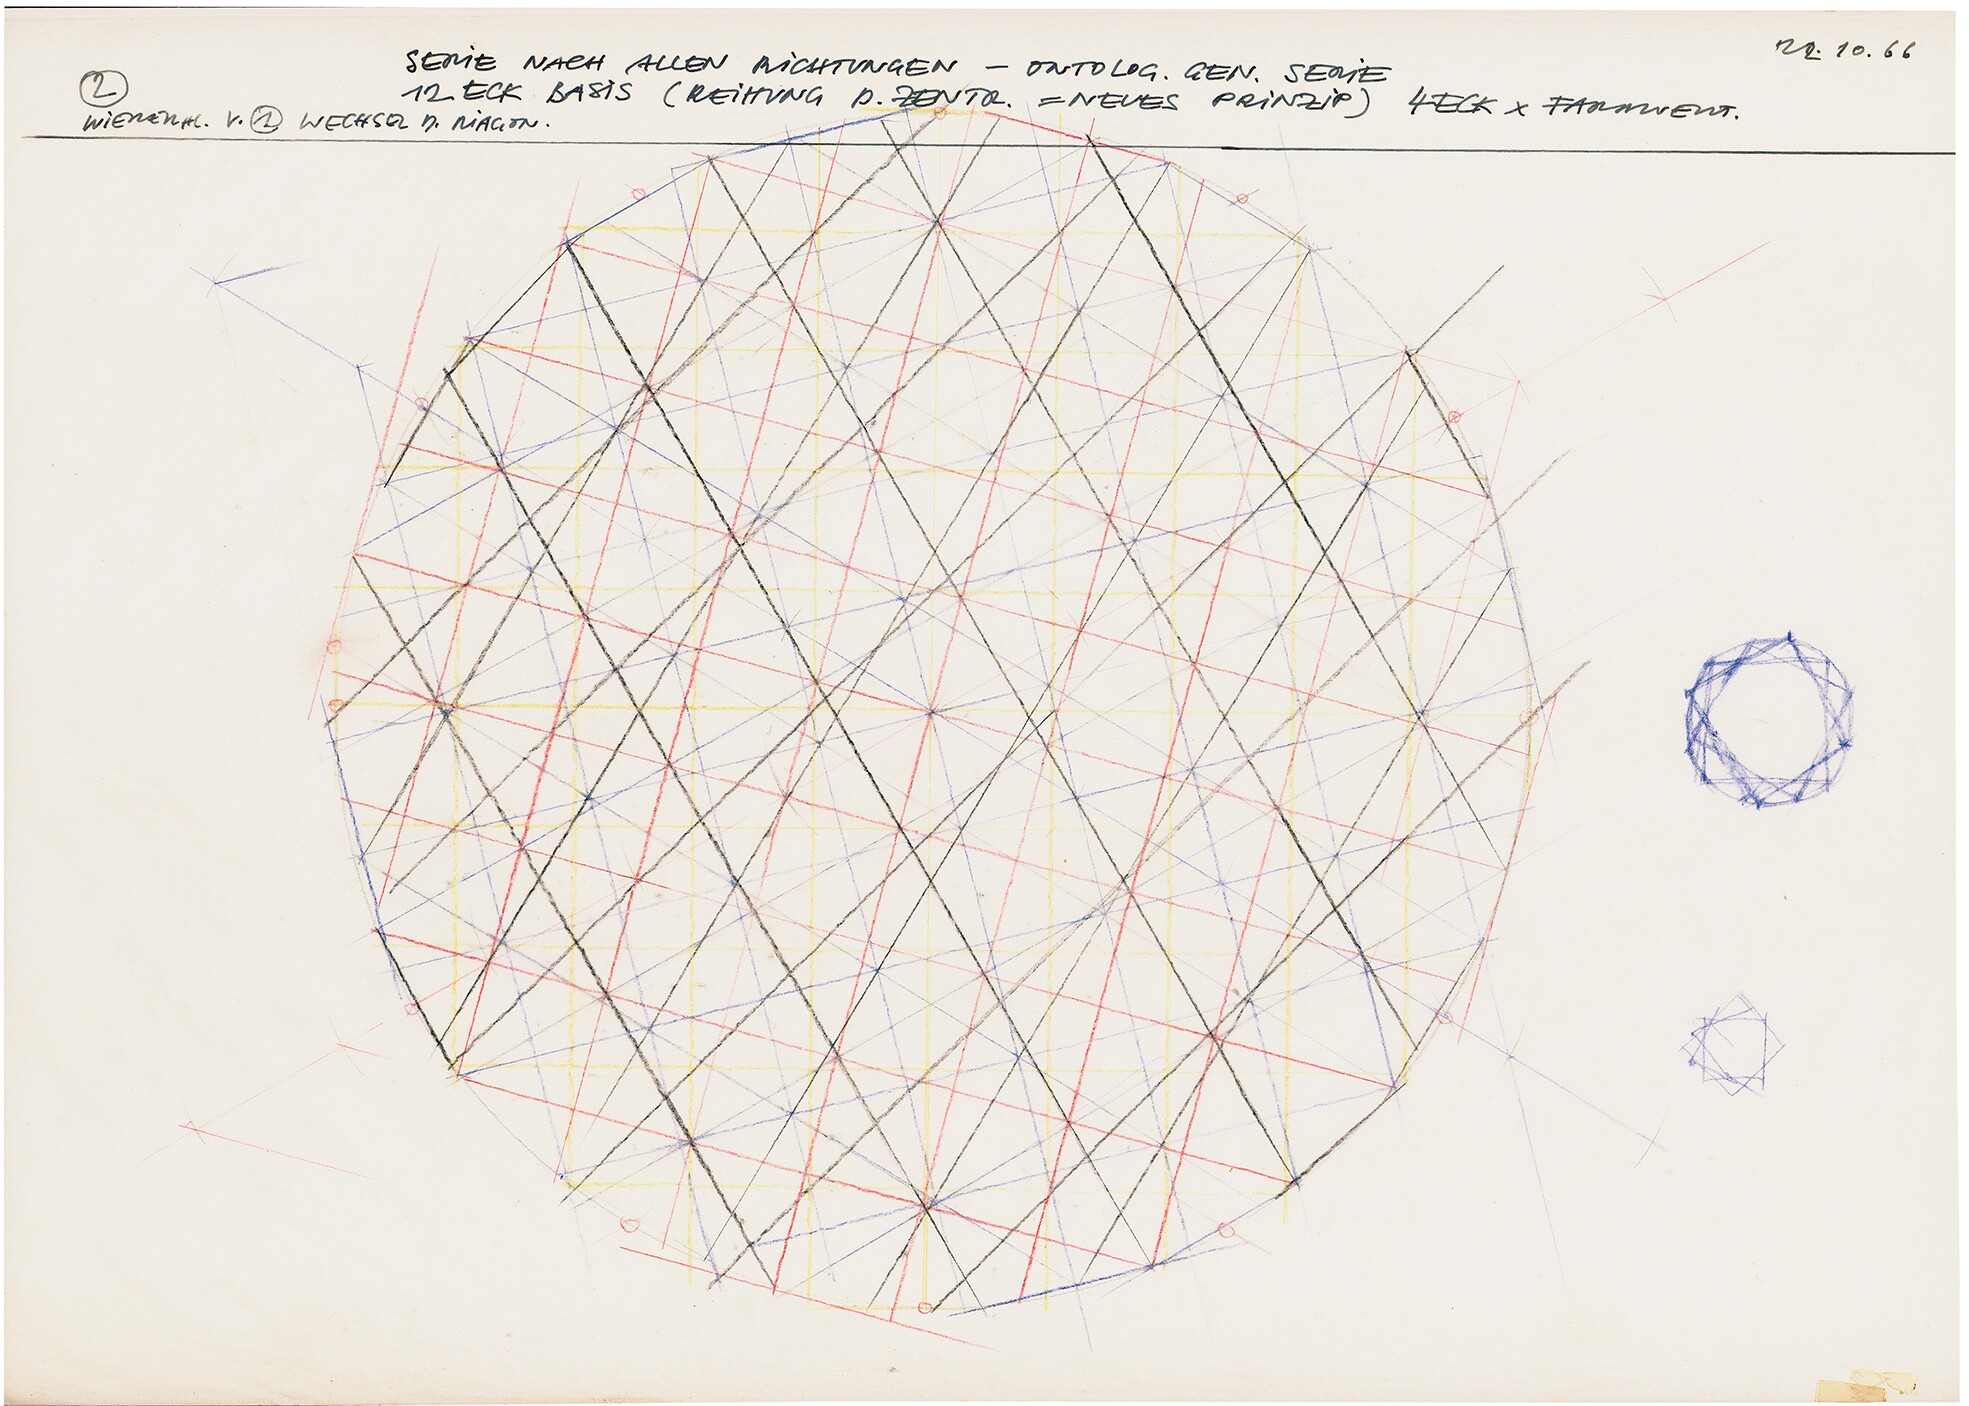 22.10.66
SERIE NACH ALLEN RICHTUNGEN – ONTOLOG. GEN. SERIE
② 12 ECK BASIS (REIHUNG D. ZENTR. = NEUES PRINZIP) 4ECK x FARBWERT.
WIEDERHL. V. ① WECHSEL D. DIAGON.